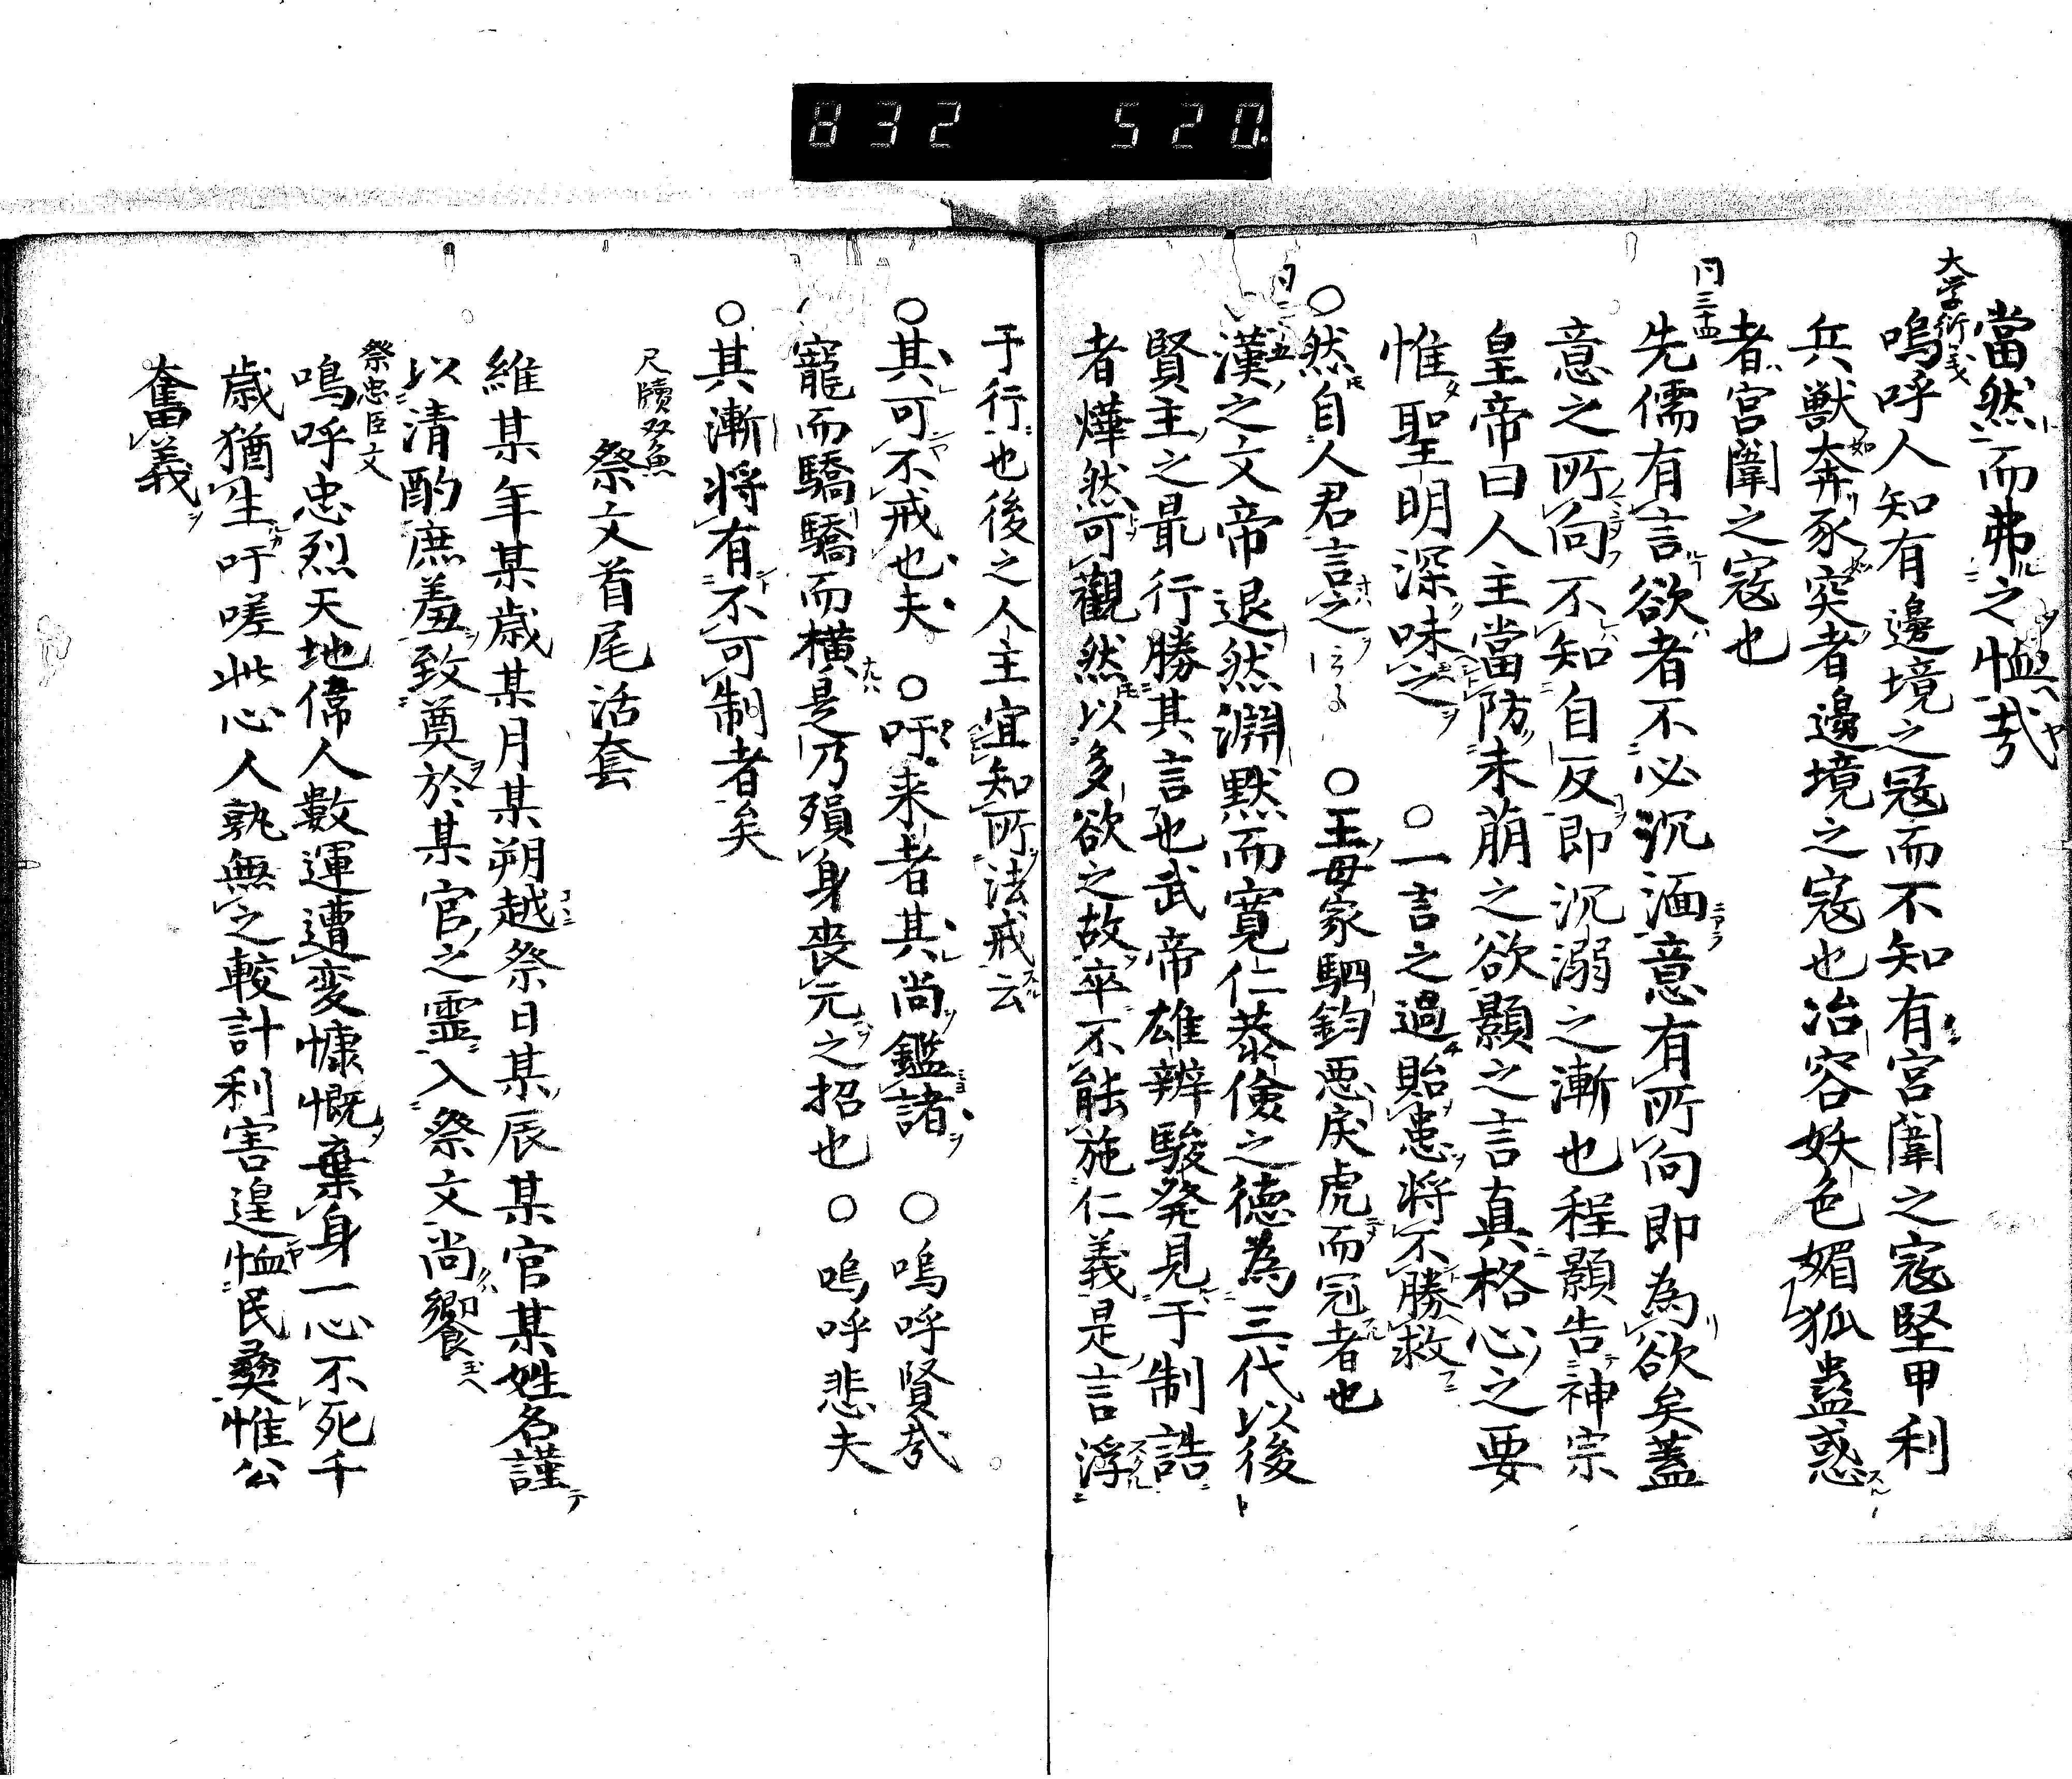 832 520.
當然而弗之恤哉
大学衍義
嗚呼人知有邊境之冦而不知有宮闈之寇堅甲利
兵獣奔豕突者邊境之寇也冶容妖色媚狐蠱惑
者宮闈之寇也
同三十四
先儒有言欲者不必沉湎意有所向即為欲矣蓋
意之所向不知自反即沉溺之漸也程顥告神宗
皇帝曰人主當防未萠之欲顥之言真格心之要
惟聖明深味之 ○一言之過貽患将不勝救
○然自人君言之 ○王毋家駟鈞悪戾虎而冠者也
漢之文帝退然淵黙而寛仁恭儉之徳為三代以後
賢主之最行勝其言也武帝雄辨駿発見于制誥
者燁然可觀然以多欲之故卒不能施仁義是言浮
于行也後之人主宜知所法戒云
○其可不戒也夫 ○吁来者其尚鑑諸 ○嗚呼賢哉
寵而驕驕而横是乃殞身喪元之招也 ○嗚呼悲夫
○其漸将有不可制者矣
尺牘双魚
祭文首尾活套
維某年某歳某月某朔越祭日某辰某官某姓名謹
以清酌庶羞致奠於某官之霊入祭文尚饗
祭忠臣文
嗚呼忠烈天地偉人數運遭変慷慨棄身一心不死千
歳猶生吁嗟此心人孰無之較計利害遑恤民彜惟公
奮義